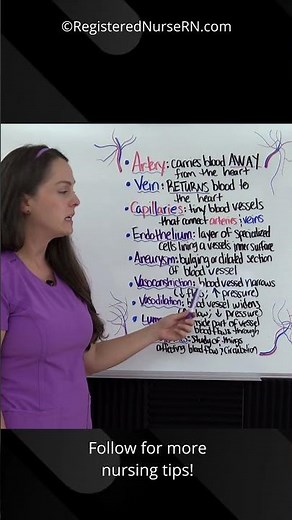 ©RegisteredNurseRN.com
• Artery: carries blood AWAY
from the heart
• Vein: RETURNS blood to
the heart
• Capillaries: tiny blood vessels
that connect arteries; veins
• Endothelium: layer of specialized
cells lining a vessels inner surface
• Aneurysm: bulging or dilated section
of blood vessel
• Vasoconstriction: blood vessel narrows
(↓ flow; ↑ pressure)
• Vasodilation: blood vessel widens
↓ pressure)
part of vessel
blood flows through
study of things
affecting blood flow; circulation
Follow for more
nursing tips!